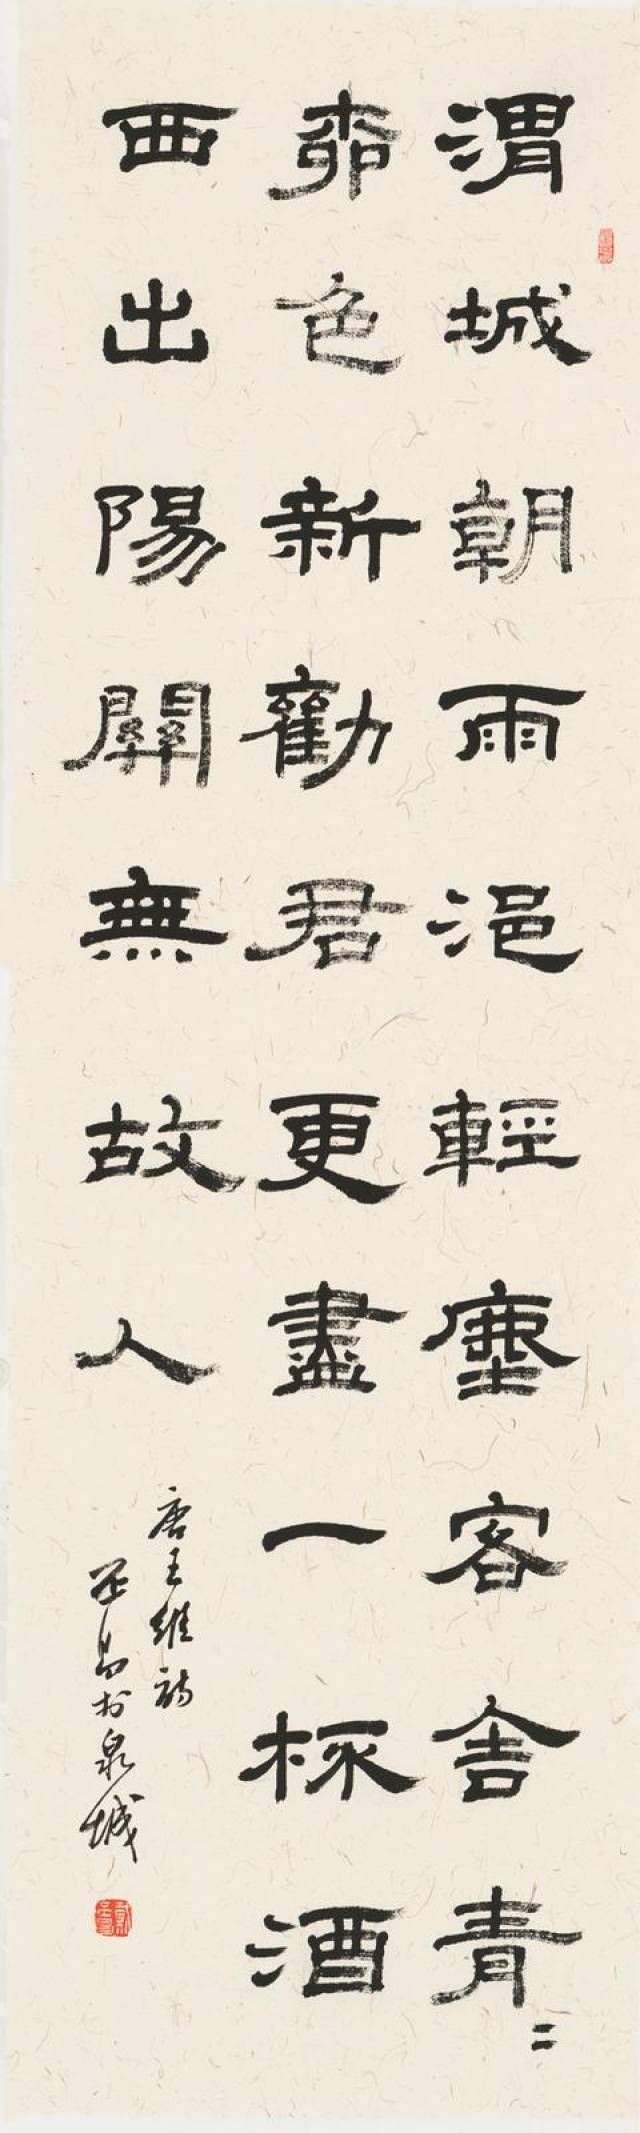 渭城朝雨浥輕塵客舍青〻
桺色新勸君更盡一杯酒
西出陽關無故人
唐王維詩
昌於泉城